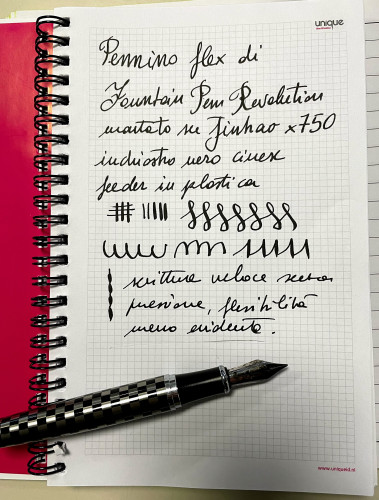 unique
Pennino flex di
Fountain Pen Revolution
montato su Jinhao x750
inchiostro nero cinese
feeder in plastica
scrittura veloce senza
pressione, flessibilità
meno evidente.
www.uniqueid.it